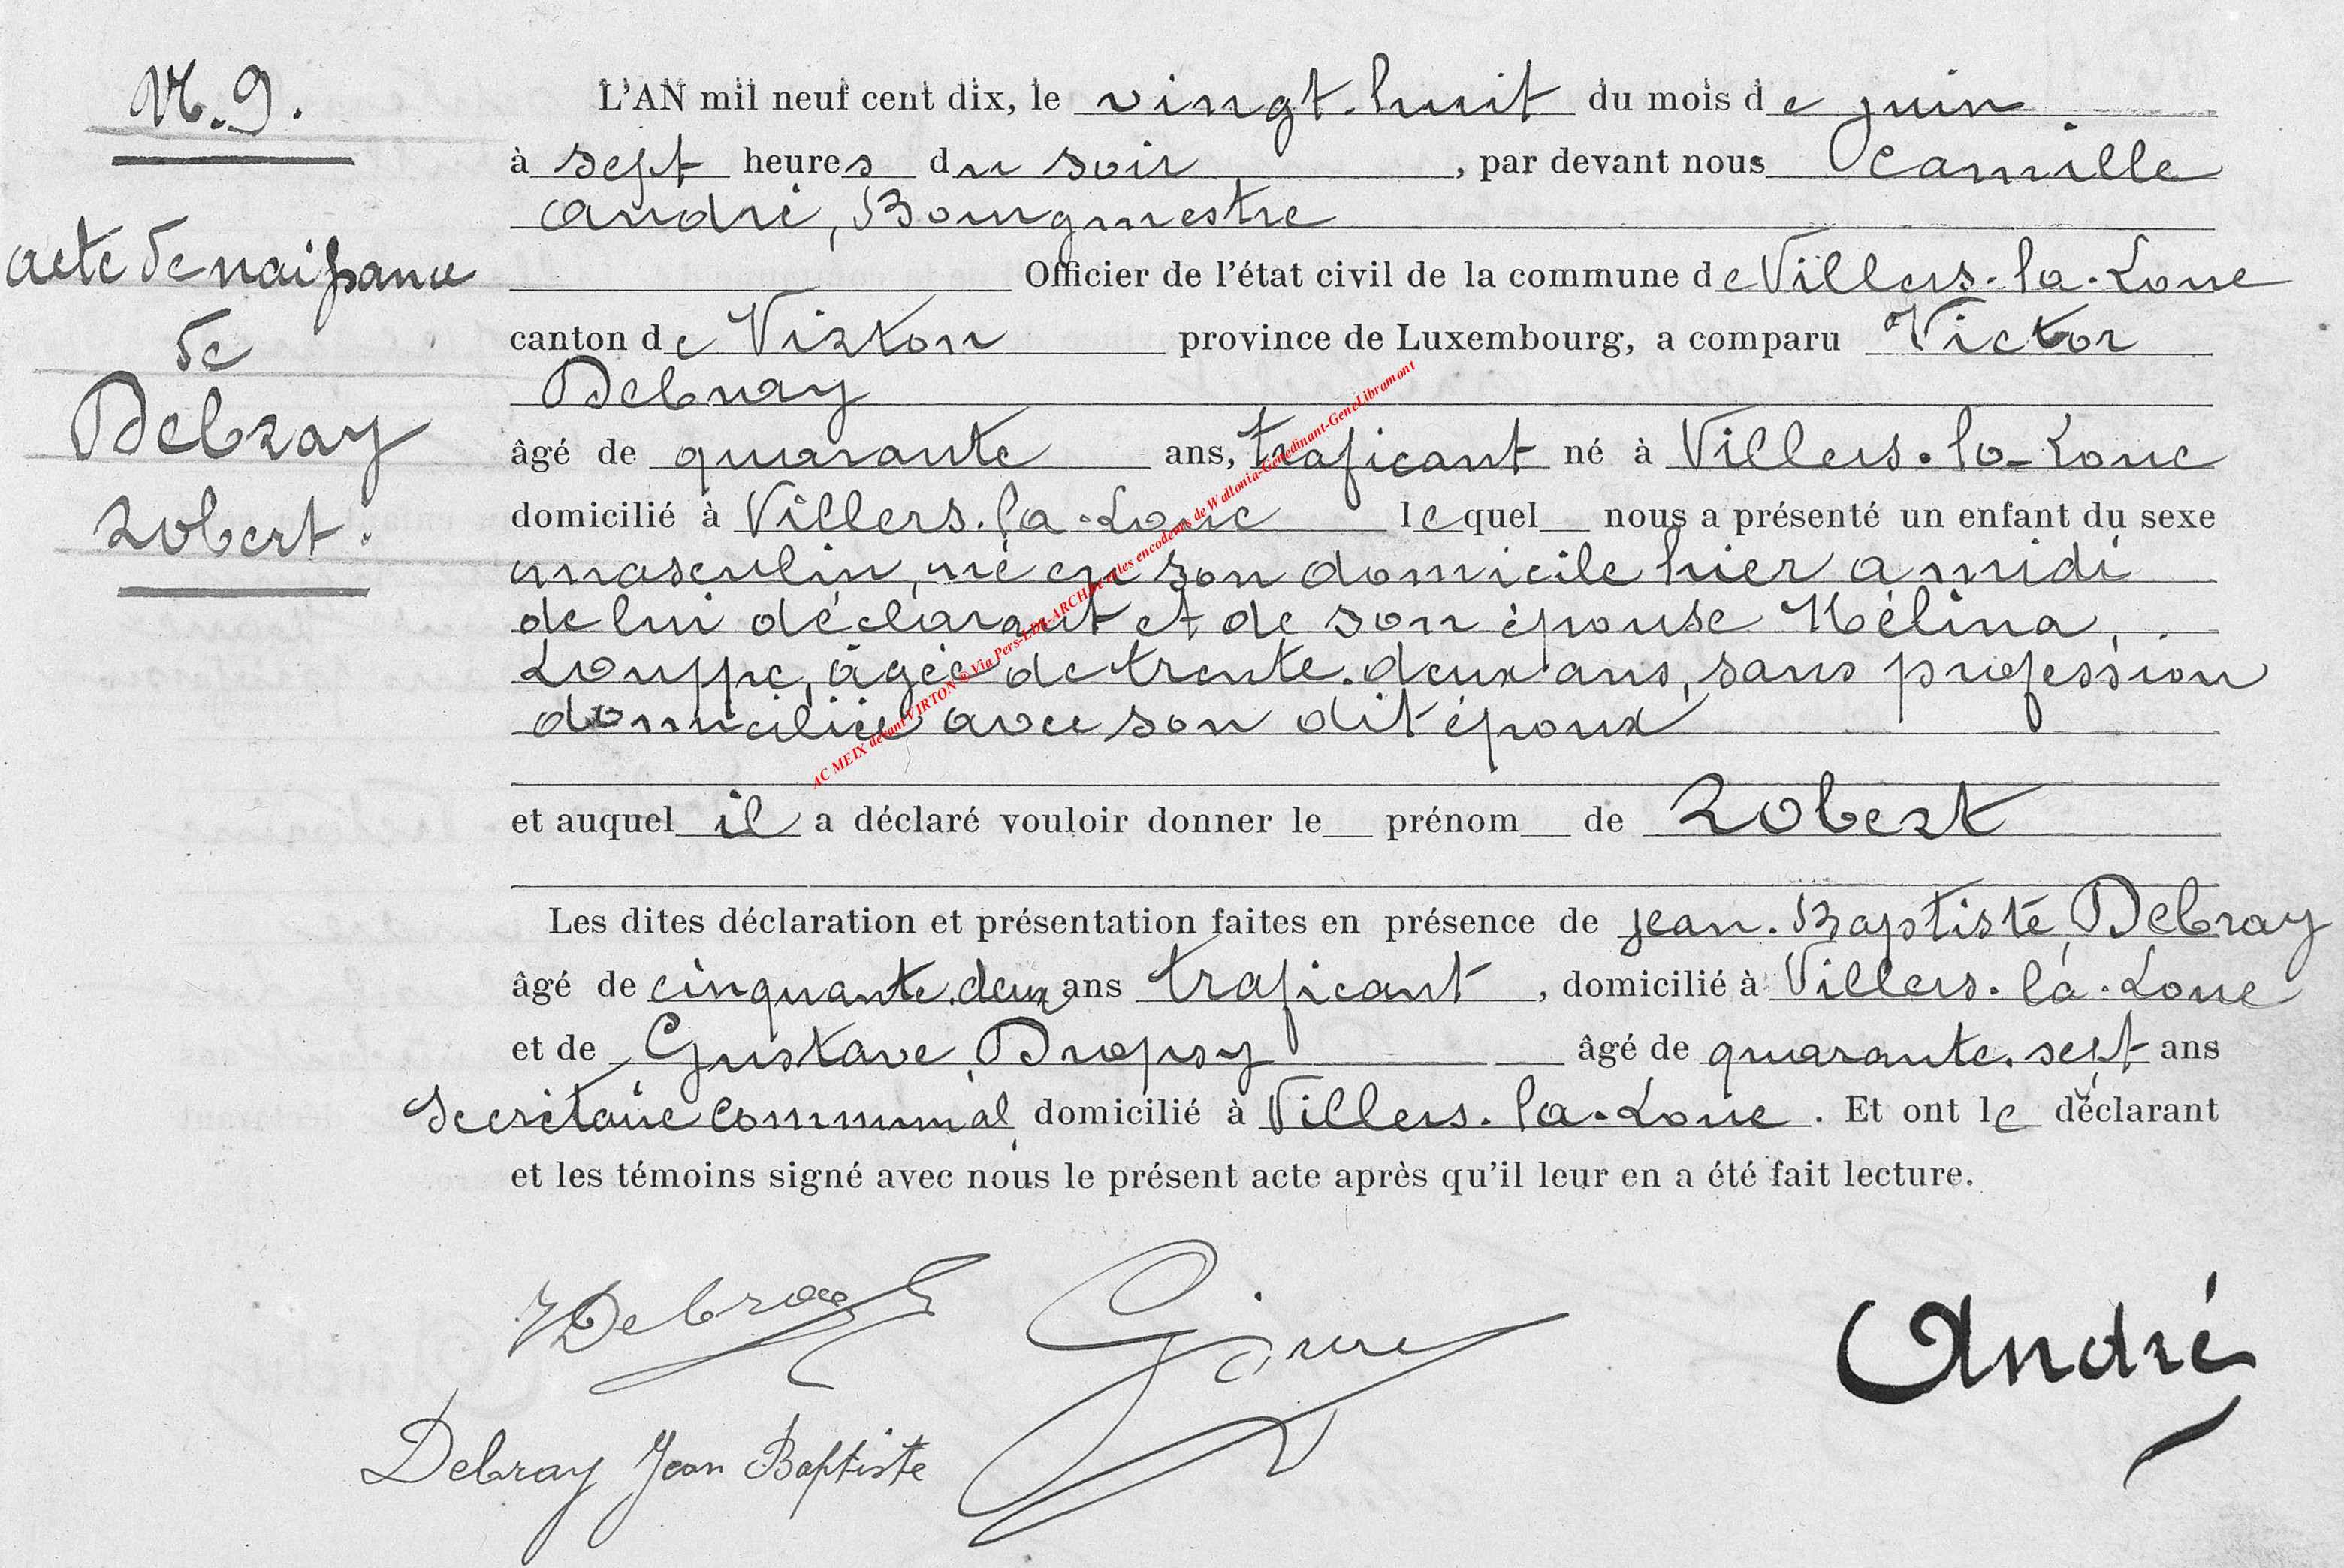 N. 9.
acte de naissance
de
Debray
Robert.
L'AN mil neuf cent dix, le vingt-huit du mois de juin
à sept heures du soir, par devant nous Camille
André, Bourgmestre
Officier de l'état civil de la commune de Villers-la-Loue
canton de Virton province de Luxembourg, a comparu Victor
Debray
âgé de quarante ans, traficant né à Villers-la-Loue
domicilié à Villers-la-Loue lequel nous a présenté un enfant du sexe
masculin, né en son domicile hier a midi
de lui déclarant et de son épouse Mélina,
Louppe, âgée de trente-deux ans, sans profession
domiciliée avec son dit époux
et auquel il a déclaré vouloir donner le prénom de Robert
Les dites déclaration et présentation faites en présence de Jean-Baptiste Debray
âgé de cinquante-deux ans traficant, domicilié à Villers-la-Loue
et de Gustave Dropsy âgé de quarante-sept ans
Secrétaire communal domicilié à Villers-la-Loue. Et ont le déclarant
et les témoins signé avec nous le présent acte après qu'il leur en a été fait lecture.
VDebray
André
Debray Jean Baptiste
AC MEIX devant VIRTON © Via Pers-LDL-ARCH et les encodeurs de Wallonia-Genedinant-GeneLibramont